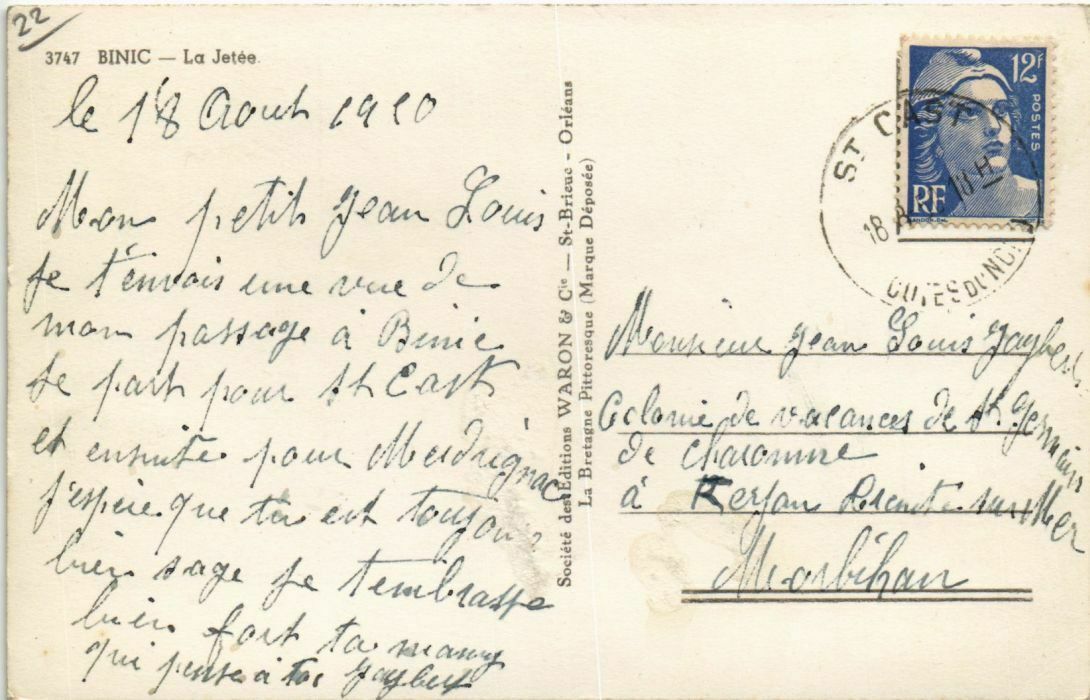 22
3747 BINIC — La Jetée
le 18 Aout 1950
Mon petit Jean Louis
Je t'envois une vue de
mon passage à Binic
Je part pour St Cast
et ensuite pour Merdrignac
j'espère que tu est toujour
bien sage je t'embrasse
bien fort ta mamy
qui pense à toi Jaybert
Société des Editions WARON & Cie — St-Brieuc - Orléans
La Bretagne Pittoresque (Marque Déposée)
12F
POSTES
RF
ST CAST
18
10 H
COTES DU NORD
Monsieur Jean Louis Jaybert
Colonie de vacances de St Germain
de Charonne
à sur Mer
Morbihan